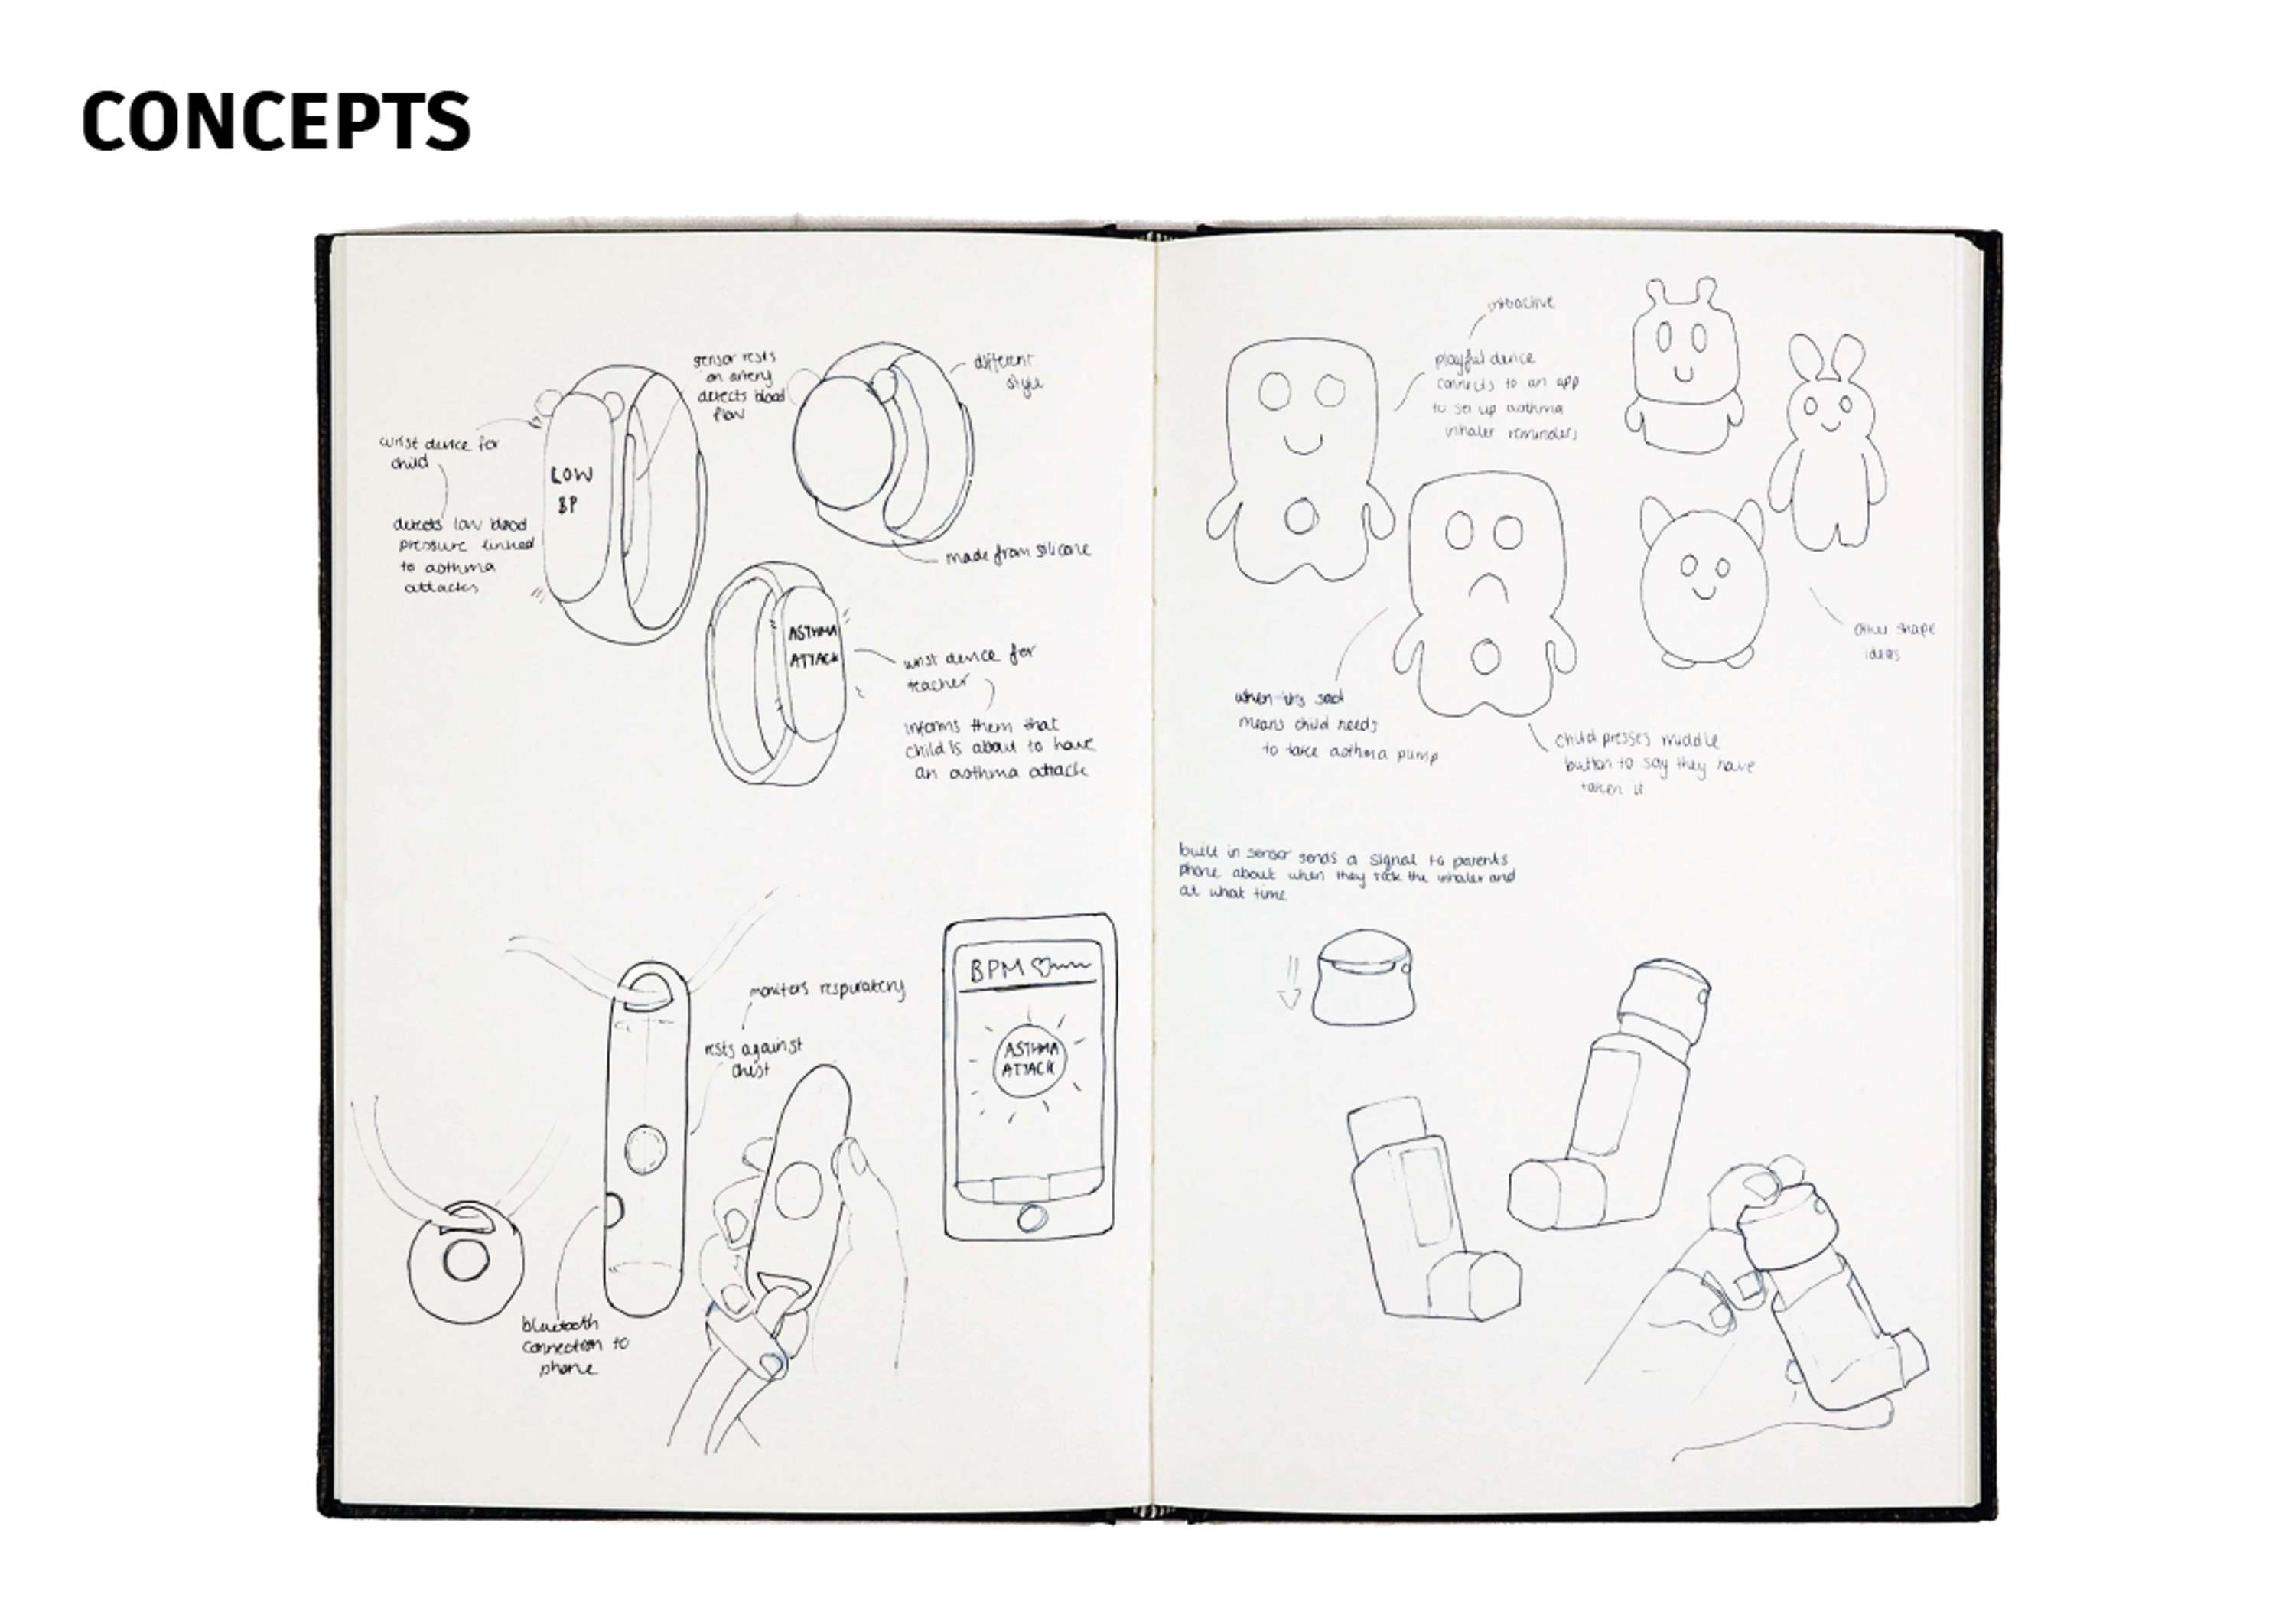 CONCEPTS
wrist device for
child
detects low blood
pressure linked
to asthma
attacks
LOW
BP
sensor rests
on artery
detects blood
flow
different
style
made from silicone
ASTHMA
ATTACK
wrist device for
teacher
informs them that
child is about to have
an asthma attack
monitors respiratory
rests against
chest
bluetooth
connection to
phone
BPM
ASTHMA
ATTACK
interactive
playful device
connects to an app
to set up asthma
inhaler reminders
other shape
ideas
when its sad
means child needs
to take asthma pump
child presses middle
button to say they have
taken it
built in sensor sends a signal to parents
phone about when they took the inhaler and
at what time